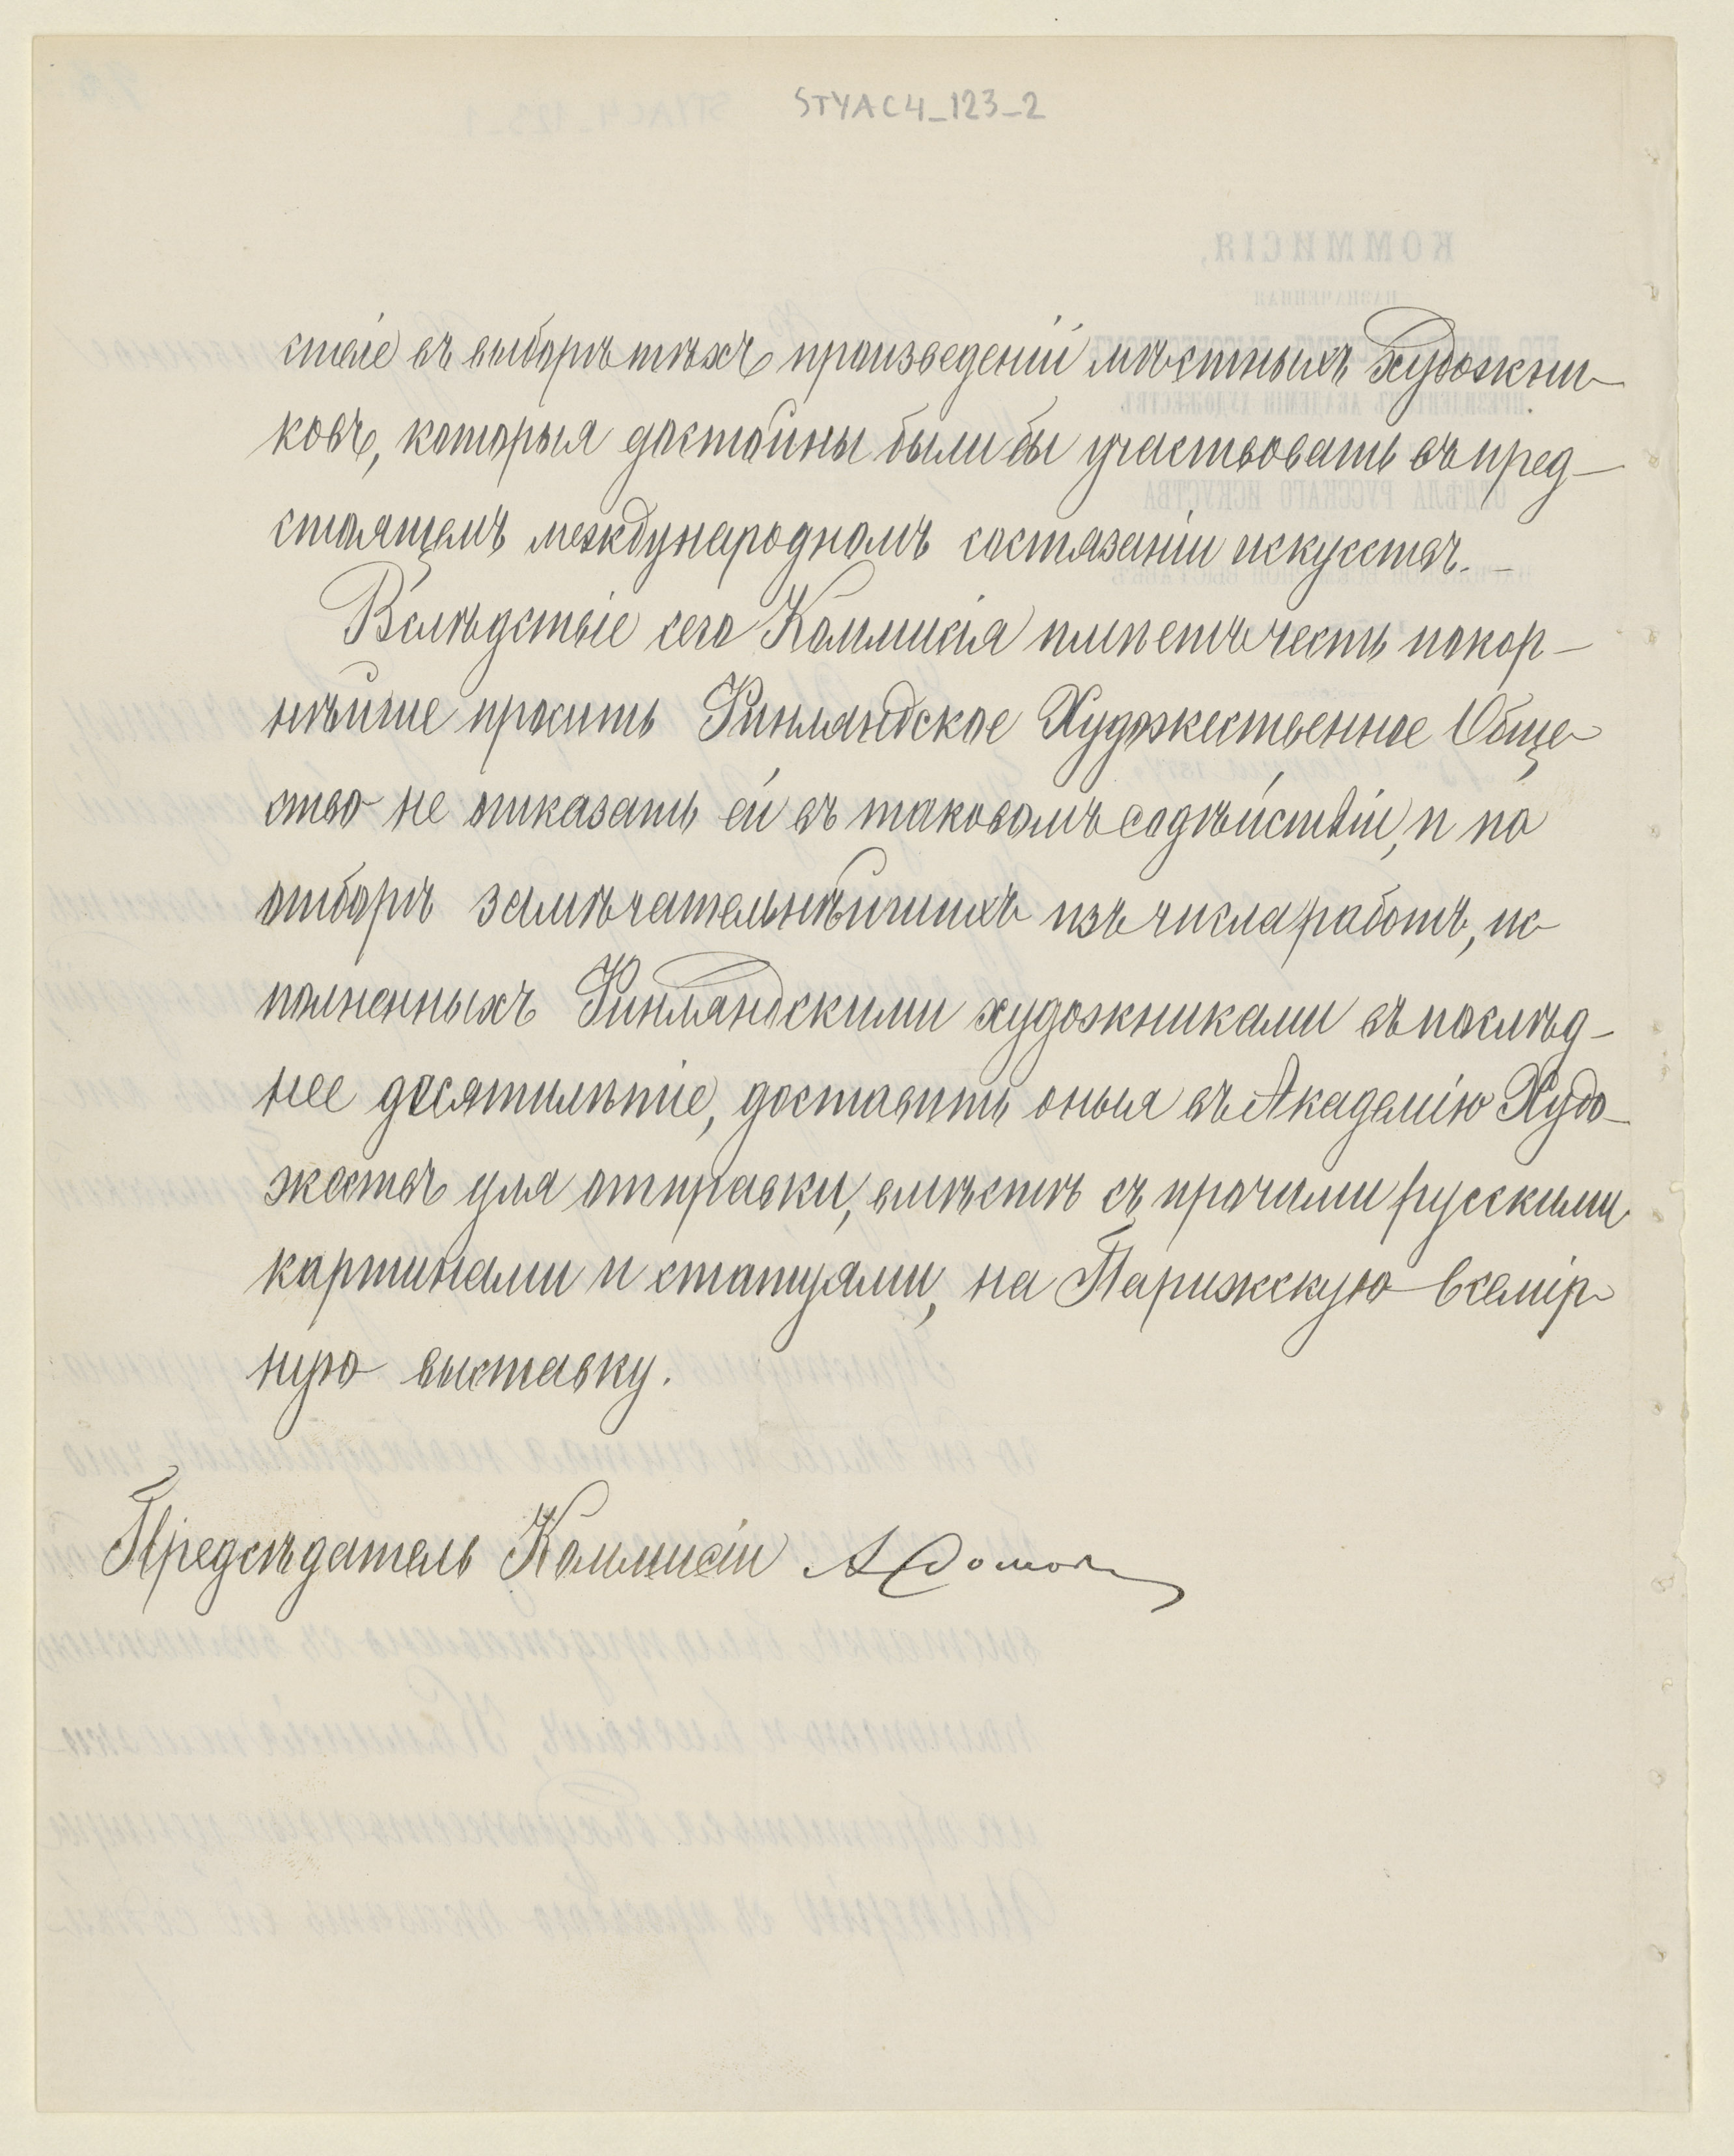 STYAC4_123_2
ствіе въ выборѣ тѣхъ произведеній мѣстныхъ художни-
ковъ, которыя достойны были бы участвовать въ пред-
стоящемъ международномъ состязаніи искусствъ.
Вслѣдствіе сего Коммисія имѣетъ честь покор-
нѣйше просить Финляндское Художественное Обще-
ство не отказать ей въ таковомъ содѣйствіи, и по
отборѣ замѣчательнѣйшихъ изъ числа работъ, ис-
полненныхъ Финляндскими художниками въ послѣд-
нее десятилѣтіе, доставить оныя въ Академію Худо-
жествъ для отправки, вмѣстѣ съ прочими русскими
картинами и статуями, на Парижскую всемір-
ную выставку.
Предсѣдатель Коммисіи А Сомовъ